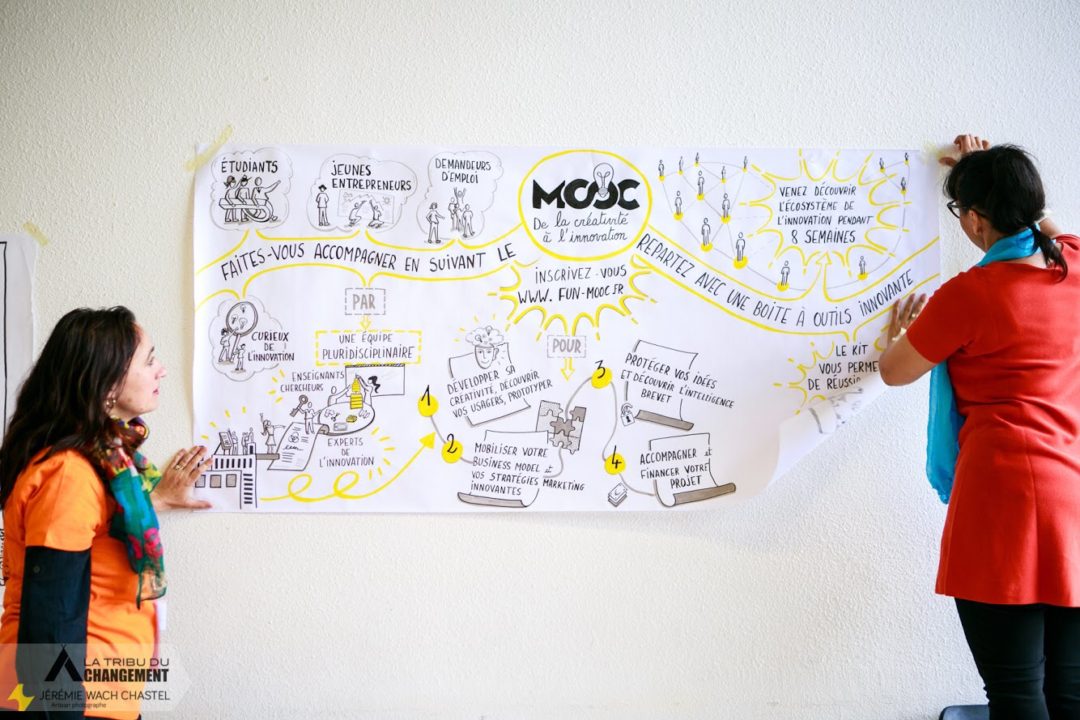 ÉTUDIANTS
JEUNES
ENTREPRENEURS
DEMANDEURS
D'EMPLOI
MOOC
De la créativité
à l'innovation
VENEZ DÉCOUVRIR
L'ÉCOSYSTÈME DE
L'INNOVATION PENDANT
8 SEMAINES
FAITES-VOUS ACCOMPAGNER EN SUIVANT LE
INSCRIVEZ-VOUS
WWW.FUN-MOOC.fr
REPARTEZ AVEC UNE BOITE À OUTILS INNOVANTE
CURIEUX
DE
L'INNOVATION
PAR
UNE ÉQUIPE
PLURIDISCIPLINAIRE
ENSEIGNANTS
CHERCHEURS
EXPERTS
DE
L'INNOVATION
POUR
1
DÉVELOPPER SA
CREATIVITÉ, DÉCOUVRIR
VOS USAGERS, PROTOTYPER
2
MOBILISER VOTRE
BUSINESS MODEL et
VOS STRATÉGIES MARKETING
INNOVANTES
3
PROTÉGER VOS IDÉES
ET DÉCOUVRIR L'INTELLIGENCE
BREVET
4
ACCOMPAGNER et
FINANCER VOTRE
PROJET
LE KIT
VOUS PERMET
DE RÉUSSIR
LA TRIBU DU
CHANGEMENT
JÉRÉMIE WACH CHASTEL
Artisan photographe